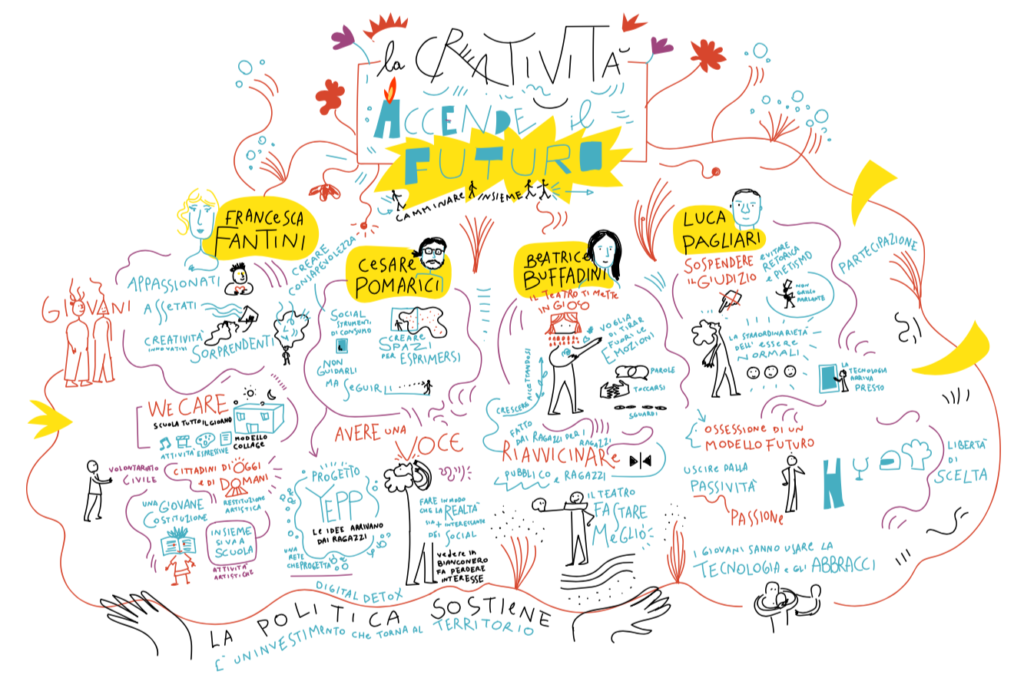 la CREATIVITÀ
ACCENDE il
FUTURO
CAMMINARE INSIEME
FRANCESCA
FANTINI
GIOVANI
APPASSIONATI
ASSETATI
CREATIVITÀ
INNOVATIVI
SORPRENDENTI
CREARE
CONSAPEVOLEZZA
WE CARE
SCUOLA TUTTO IL GIORNO
ATTIVITÀ ESPRESSIVE
MODELLO
COLLAGE
VOLONTARIATO
CIVILE
CITTADINI DI OGGI
E DI DOMANI
RESTITUZIONE
ARTISTICA
UNA GIOVANE
COSTITUZIONE
INSIEME
SI VA A
SCUOLA
ATTIVITÀ
ARTISTICHE
CESARE
POMARICI
SOCIAL
STRUMENTI
DI CONSUMO
CREARE
SPAZI
PER ESPRIMERSI
NON
GUIDARLI
MA SEGUIRLI
AVERE UNA
VOCE
PROGETTO
YEPP
LE IDEE ARRIVANO
DAI RAGAZZI
UNA
RETE
CHE PROGETTA
FARE IN MODO
CHE LA REALTÀ
SIA + INTERESSANTE
DEI SOCIAL
VEDERE IN
BIANCONERO
FA PERDERE
INTERESSE
DIGITAL DETOX
BEATRICE
BUFFADINI
IL TEATRO TI METTE
IN GIOCO
VOGLIA
DI TIRAR
FUORI LE
EMOZIONI
PAROLE
TOCCARSI
SGUARDI
CRESCERE ACCETTANDOSI
FATTO
DAI RAGAZZI PER I RAGAZZI
RIAVVICINARE
PUBBLICO E RAGAZZI
IL TEATRO
FA STARE
MEGLIO
LUCA
PAGLIARI
SOSPENDERE
IL GIUDIZIO
EVITARE
RETORICA
E PIETISMO
NON
GRILLO
PARLANTE
LA STRAORDINARIETÀ
DELL'ESSERE
NORMALI
LA
TECNOLOGIA
ARRIVA
PRESTO
PARTECIPAZIONE
OSSESSIONE DI UN
MODELLO FUTURO
USCIRE DALLA
PASSIVITÀ
PASSIONE
LIBERTÀ
DI
SCELTA
I GIOVANI SANNO USARE LA
TECNOLOGIA E GLI ABBRACCI
LA POLITICA SOSTIENE
È UN INVESTIMENTO CHE TORNA AL TERRITORIO